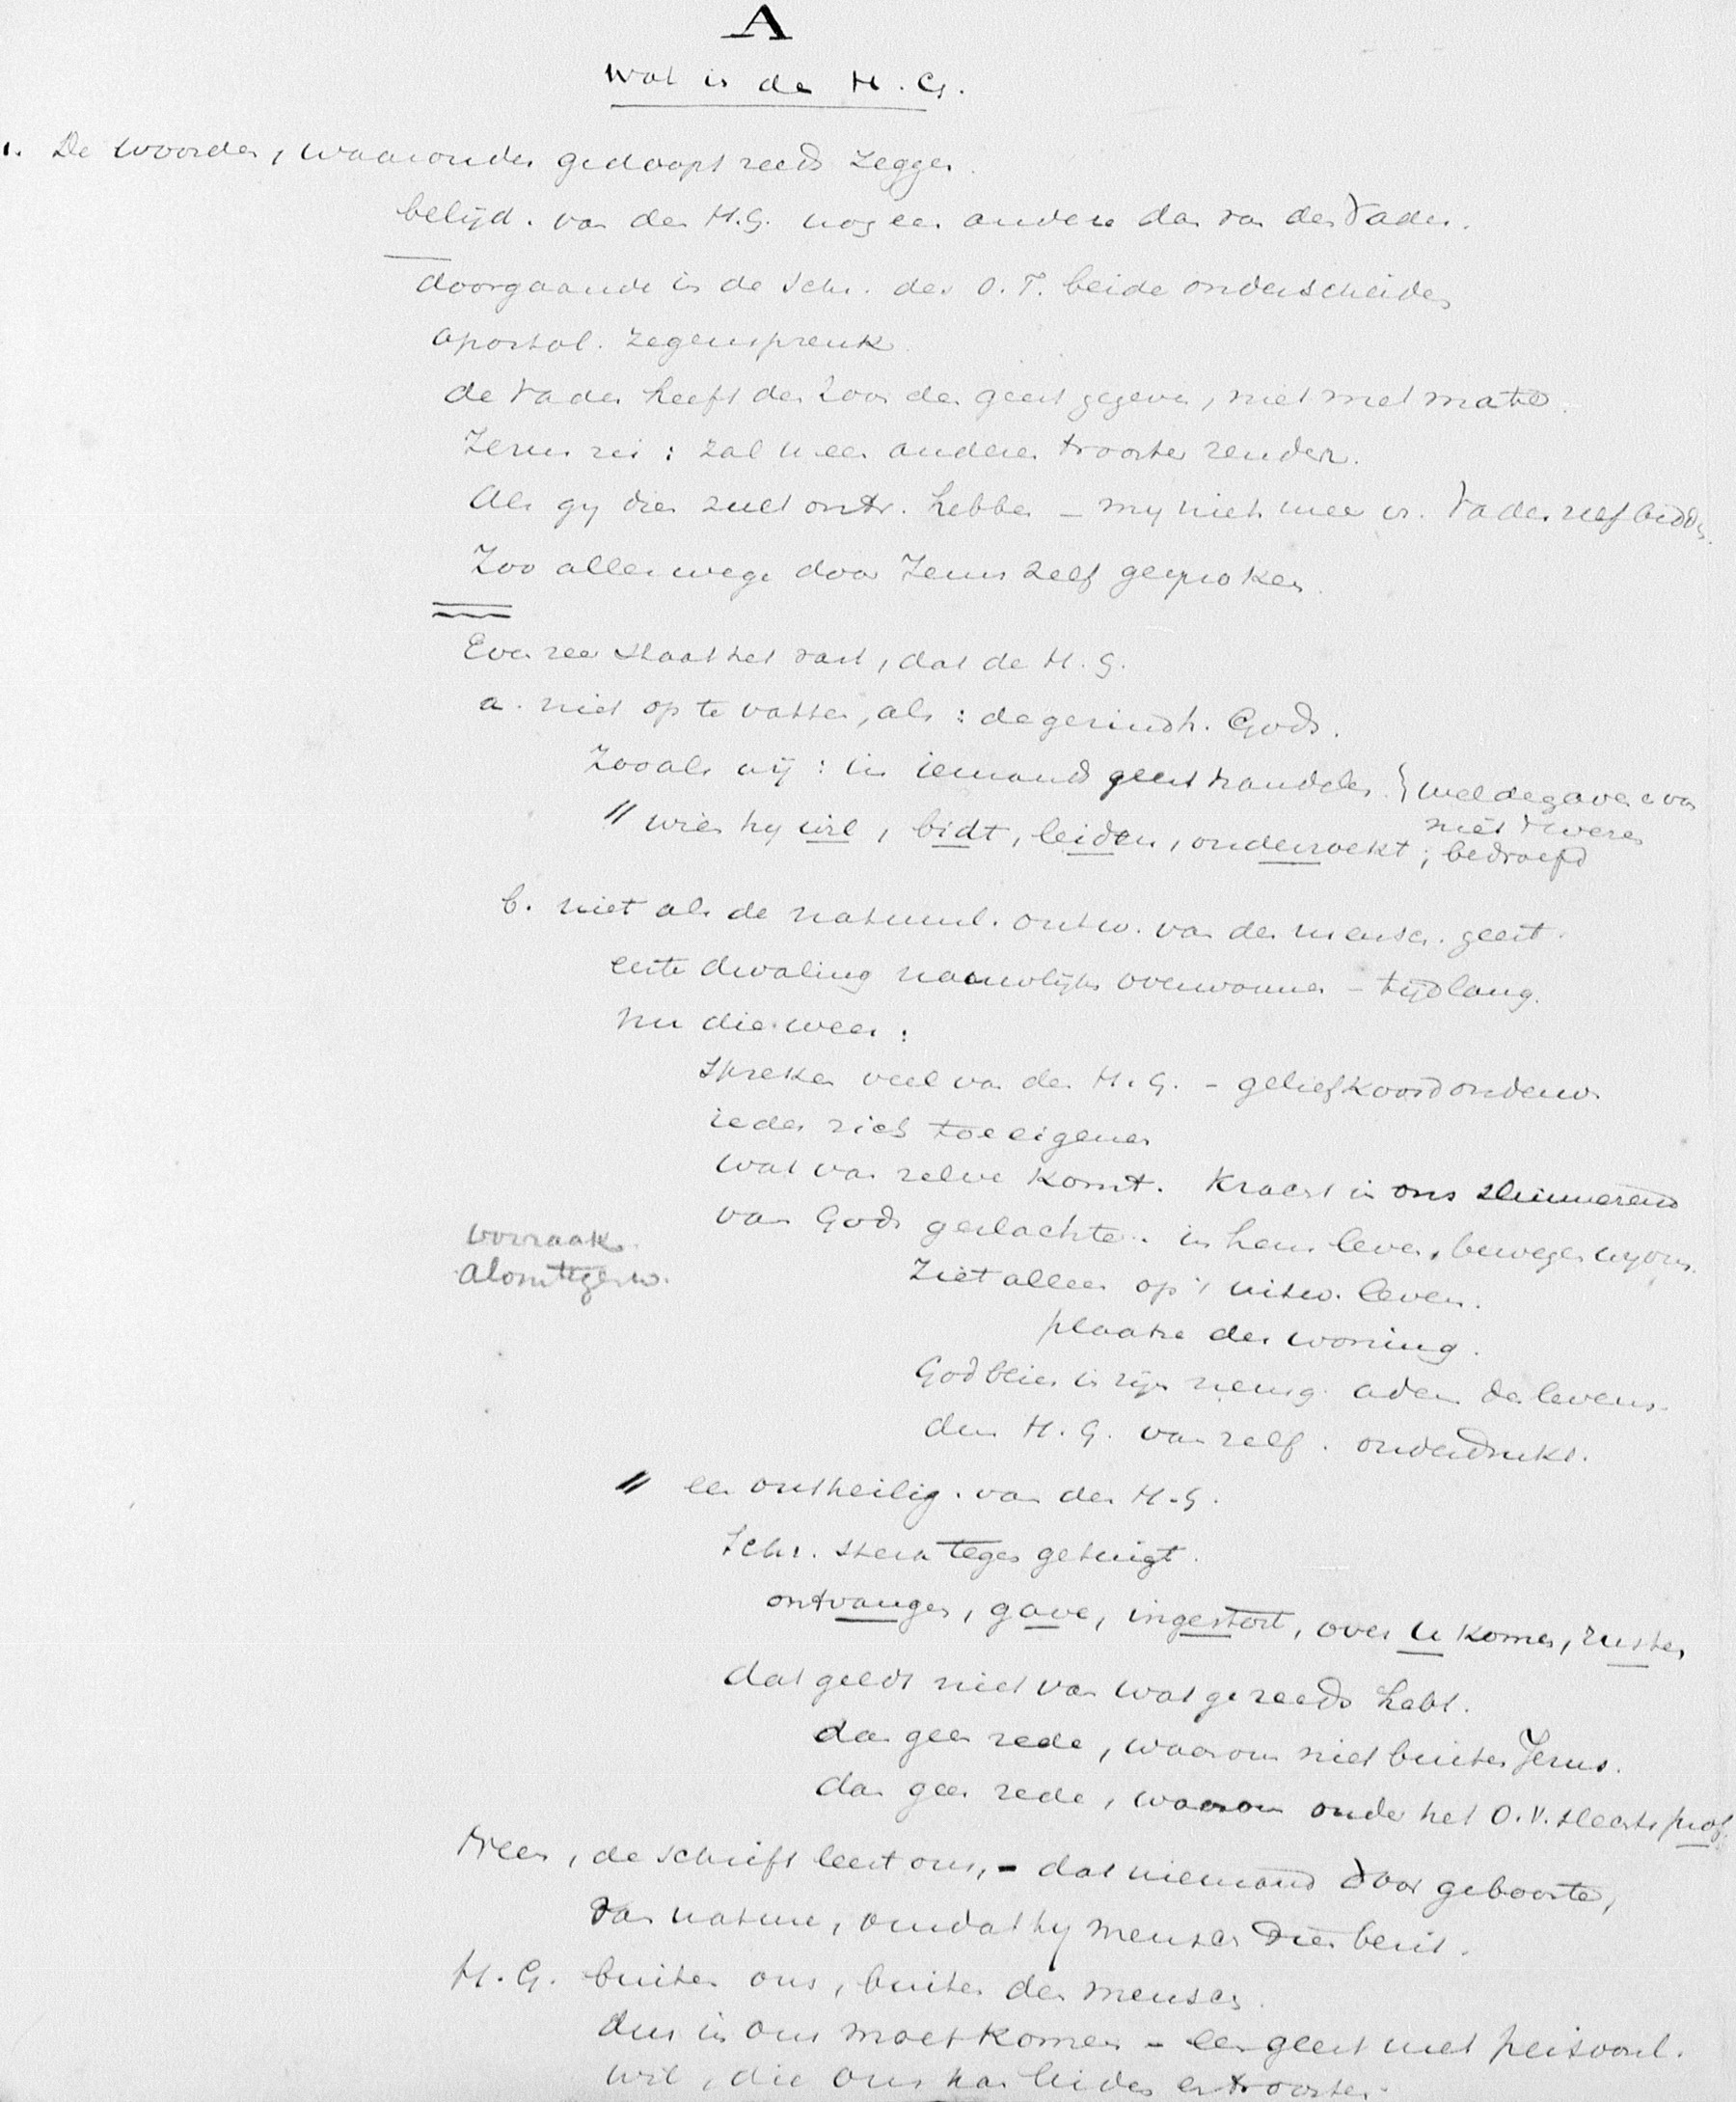 A
Wat is de H. G.
1. De woorden, waaronder gedoopt reeds zeggen.
belijd. van den H.G. nog een andere dan van den Vader.
doorgaande in de Schr. des O. T. beide onderscheiden
apostol. zegenspreuk.
de Vader heeft den Zoon den geest gegeven, niet met mate.
Jezus zei: zal u een anderen trooster zenden.
Als gy dien zult ontv. hebben – my niet meer
Vader zelf bidden.
Zoo allerwege door Jezus zelf gesproken.
Evenzeer staat het vast, dat de H. G.
a. niet op te vatten, als: de gezindh. Gods.
Zooals wij: in iemands geest handelen. } wel de gave ervan
niet 't wezen
// wien hy wil, bidt, leiden, onderzoekt; bedroefd
b. niet als de natuurl. ontw. van den mensch. geest.
eerste dwaling nauwlijks overwonnen – tijdlang.
nu die weer:
Spreken veel van den H. G. – geliefkoosd onderw.
ieder zich toeeigenen
wat van zelve komt. Kracht in ons sluimerend
van Gods geslachte. in hem leven, bewegen wy ons.
oorzaak.
alomtegenw.
Ziet alleen op 't uitw. leven.
plaatse der woning.
God blies in zijn neusg. adem des levens.
den H. G. van zelf. onderdrukt.
// een ontheilig. van den H. G.
Schr. sterk tegen getuigt.
ontvangen, gave, ingestort, over u komen, rusten
dat geldt niet van wat ge reeds hebt.
dan geen rede, waarom niet buiten Jezus.
dan geen rede, waarom onder het O. V. slechts prof.
Neen, de schrift leert ons, – dat niemand door geboorte,
van nature, omdat hy mensch dien bezit.
H. G. buiten ons, buiten den mensch.
dus in ons moet komen – een geest met persoonl.
wil, die ons kan leiden en troosten.